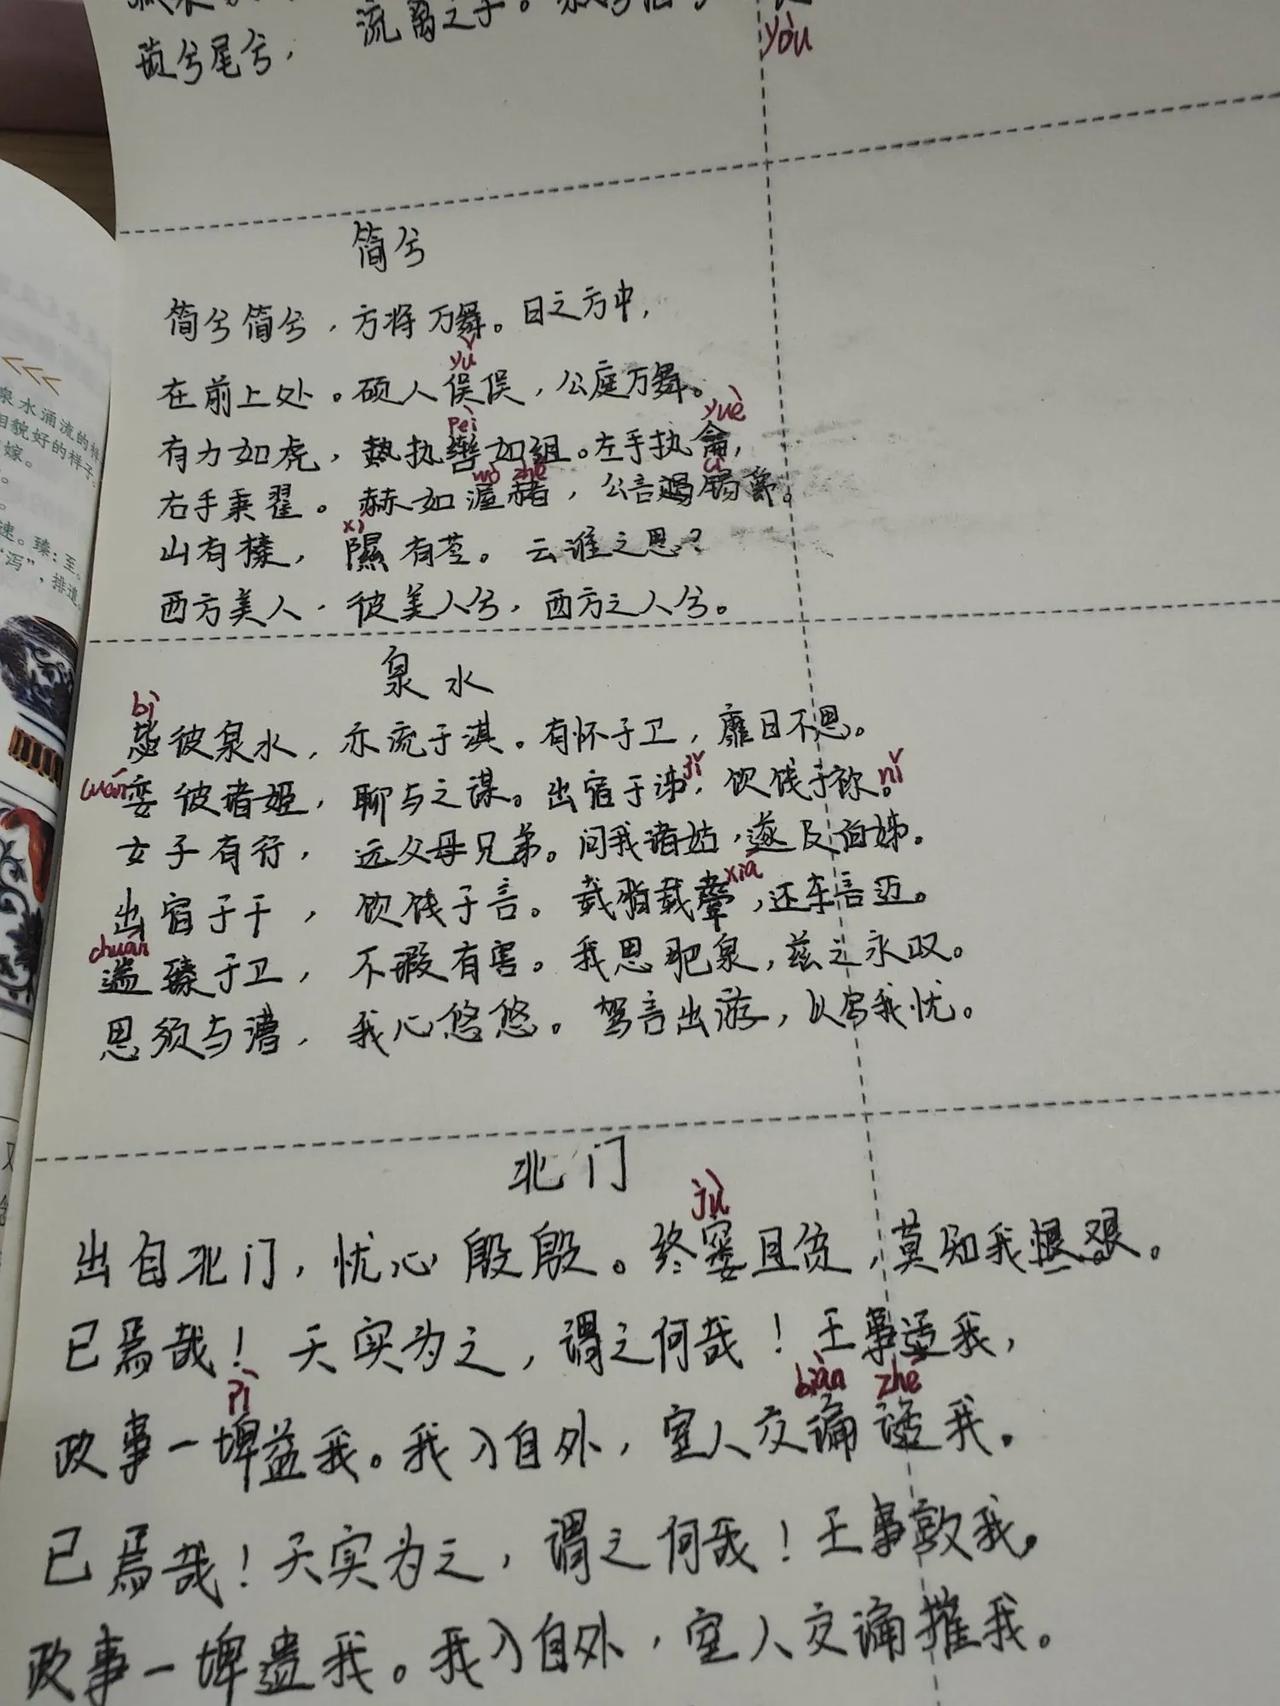 琐兮尾兮，流离之子。
yòu
简兮
简兮简兮，方将万舞。日之方中，
yǔ
在前上处。硕人俣俣，公庭万舞。
pèi yuè
有力如虎，执辔如组。左手执龠，
wò zhě cì
右手秉翟。赫如渥赭，公言锡爵。
xí
山有榛，隰有苓。云谁之思？
西方美人。彼美人兮，西方之人兮。
泉水
bì
毖彼泉水，亦流于淇。有怀于卫，靡日不思。
luán jǐ nǐ
娈彼诸姬，聊与之谋。出宿于泲，饮饯于祢。
女子有行，远父母兄弟。问我诸姑，遂及伯姊。
xiá
出宿于干，饮饯于言。载脂载舝，还车言迈。
chuán
遄臻于卫，不瑕有害。我思肥泉，兹之永叹。
思须与漕，我心悠悠。驾言出游，以写我忧。
北门
jù
出自北门，忧心殷殷。终窭且贫，莫知我艰。
已焉哉！天实为之，谓之何哉！王事适我，
pì biàn zhé
政事一埤益我。我入自外，室人交谪我。
已焉哉！天实为之，谓之何哉！王事敦我。
政事一埤遗我。我入自外，室人交谪摧我。
泉水涌流的样
相貌好的样子
嫁。
速。臻：至。
“泻”，排遣